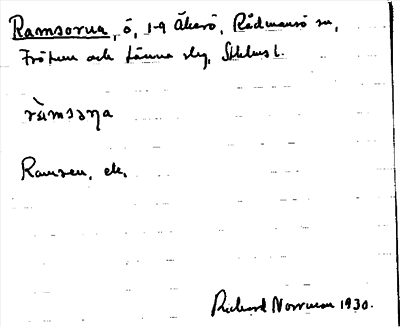 Ramsorna, ö, 1-9 Åkerö, Rådmansö sn,
Frötuna och Länna slg, Sthlms l.
ràmsoɳa
Ramsen, ek.
Richard Norrman 1930.